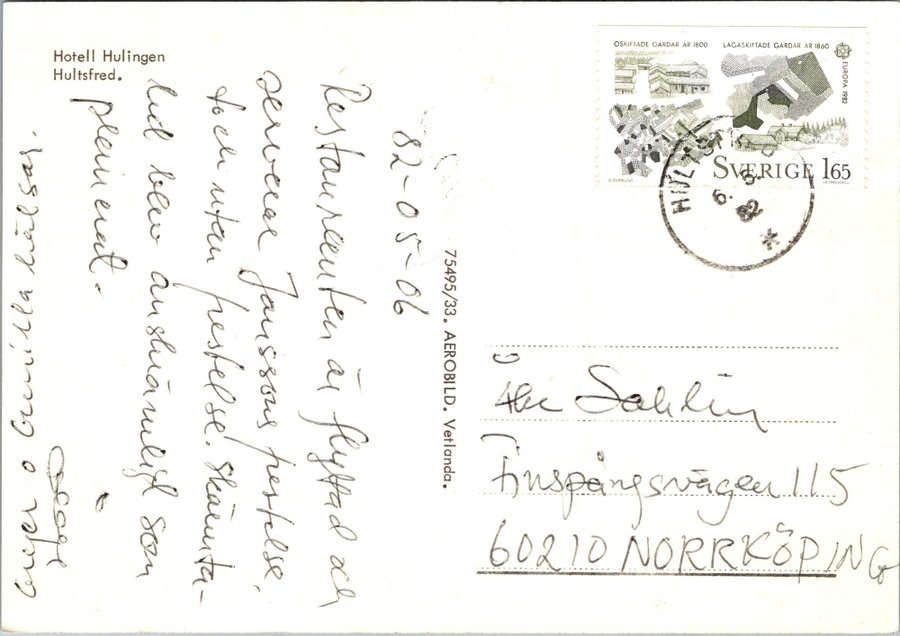 Hotell Hulingen
Hultsfred.
82-05-06
Restauranten är flyttad och
serverar Janssons frestelse,
utan frestelse.
blev anskrämligt som
planerat.
o Gunilla hälsar.
75495/33. AEROBILD. Vetlanda.
OSKIFTADE GARDAR AR 1800
LAGASKIFTADE GARDAR AR 1860
EUROPA 1982
SVERIGE 165
HULTSFRED
6. 5.
82
Åke Sahlin
Finspångsvägen 115
60210 NORRKÖPING